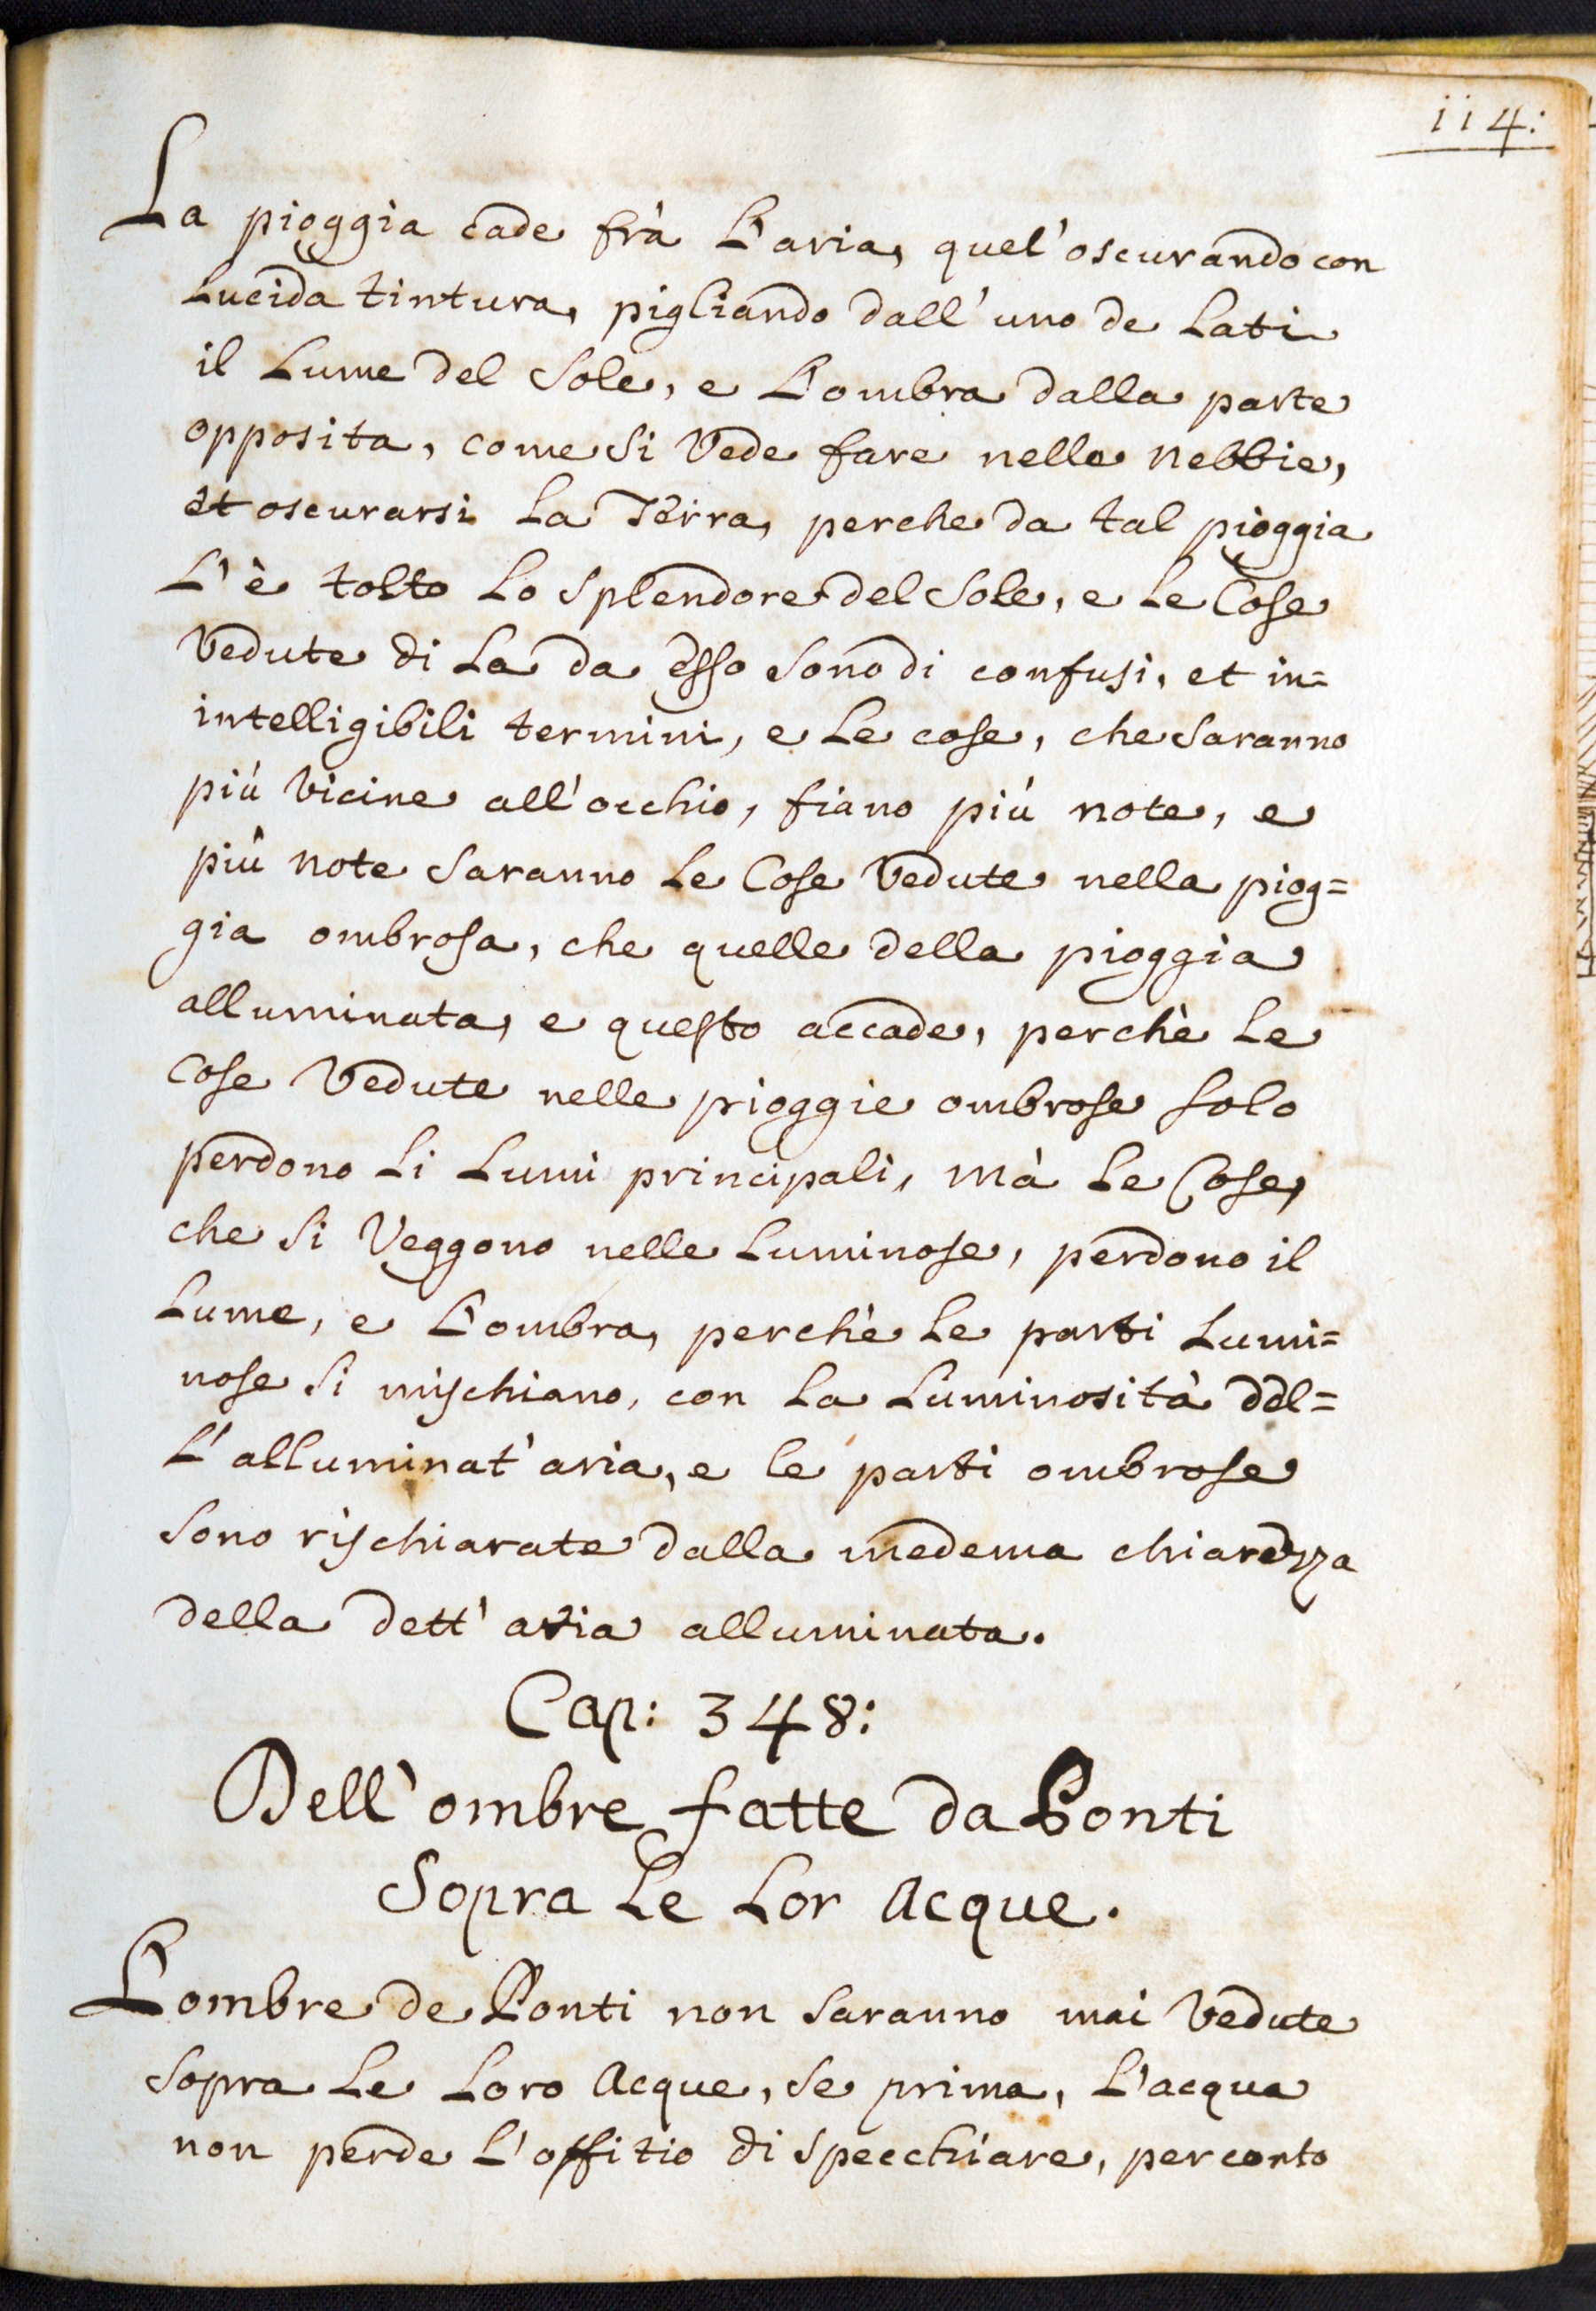 114:
La pioggia cade frà L'aria, quel'oscurando con
Lucida tintura, pigliando dall'uno de Lati
il Lume del Sole, e L'ombra dalla parte
opposita, come si Vede fare nelle Nebbie,
et oscurarsi La Terra, perche da tal pioggia
L'è tolto Lo Splendore del Sole, e Le Cose
Vedute di La da Esso Sono di confusi, et in=
intelligibili termini, e Le cose, che Saranno
più Vicine all'occhio, fiano più note, e
più note Saranno Le Cose Vedute nella piog=
gia ombrosa, che quelle della pioggia
alluminata, e questo accade, perchè Le
Cose Vedute nelle pioggie ombrose solo
perdono Li Lumi principali, mà Le Cose,
che Si Veggono nelle Luminose, perdono il
Lume, e L'ombra, perchè Le parti Lumi=
nose Si mischiano, con La Luminosità del=
L'alluminat'aria, e le parti ombrose
Sono rischiarate dalla medema chiarezza
della dett'aria alluminata.
Cap: 348:
Dell'ombre fatte da Ponti
Sopra Le Lor Acque.
L'ombre de Ponti non Saranno mai Vedute
Sopra Le Loro Acque, Se prima, L'acqua
non perde L'offitio di Specchiare, per conto